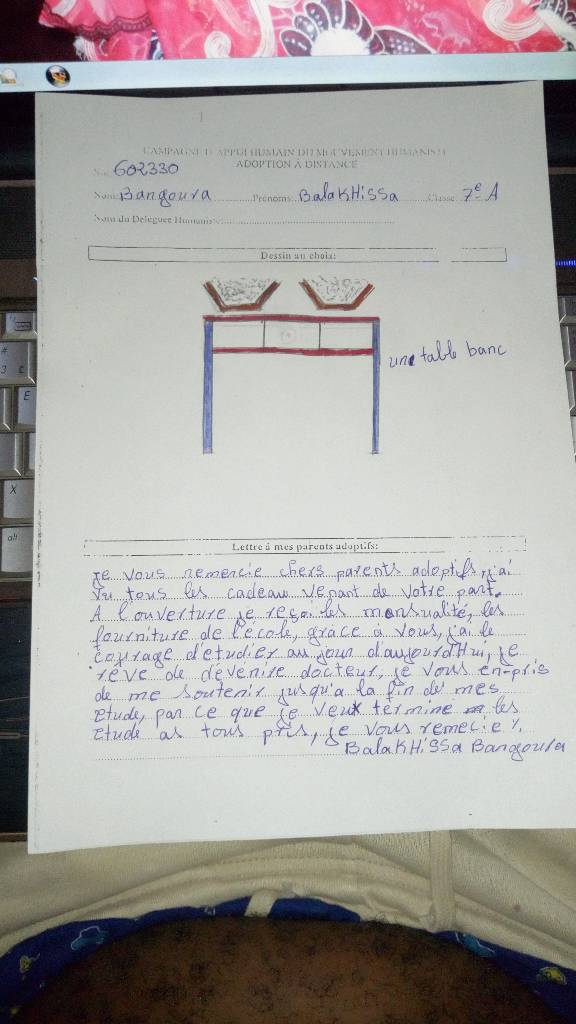 CAMPAGNE D'APPUI HUMAIN DU MOUVEMENT HUMANISTE
ADOPTION À DISTANCE
No: 602330
Nom: Bangoura Prénoms: BalaKHissa Classe: 7e A
Nom du Délégué Humaniste:
Dessin au choix:
une table banc
Lettre à mes parents adoptifs:
je vous remercie chers parents adoptifs, j'ai
vu tous les cadeau venant de votre part.
A l'ouverture je reçoi les mensualité, les
fourniture de l'ecole, grâce a vous, j'ai le
courage d'etudier au jour d'aujourdHui, je
reve de devenire docteur, je vous en-pris
de me soutenir jusqu'a la fin de mes
Etude, par ce que je veux termine les
Etude as tous pris, je vous remecie %.
BalaKHissa Bangoura